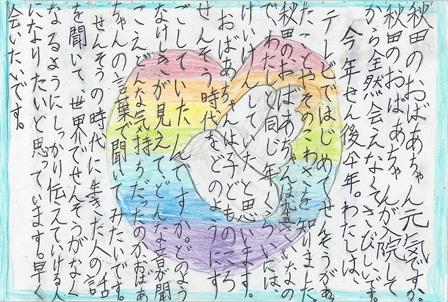 秋田のおばあちゃん元気ですか。
秋田のおばあちゃんが入院して
から全然会えなくてさびしいです。
今年はせん後七十年。わたしは、
テレビではじめて、せんそうがあっ
たことやそのひさんさを知りました。
秋田のおばあちゃんは
でわたしと同じ年くらい
けいけんしていたと思います。
おばあちゃんは子どものころ
せんそう時代などのようにす
ごしていたんですか。どのよう
なけしきが見えて、どんな音が聞
こえどんな気持ちだったのかおばあ
ちゃんの言葉で聞いてみたいです。
せんそうの時代に生きた人の話
を聞いて、世界でせんそうがなく
なるようにしっかり伝えていける人
になりたいと思っています。早く
会いたいです。